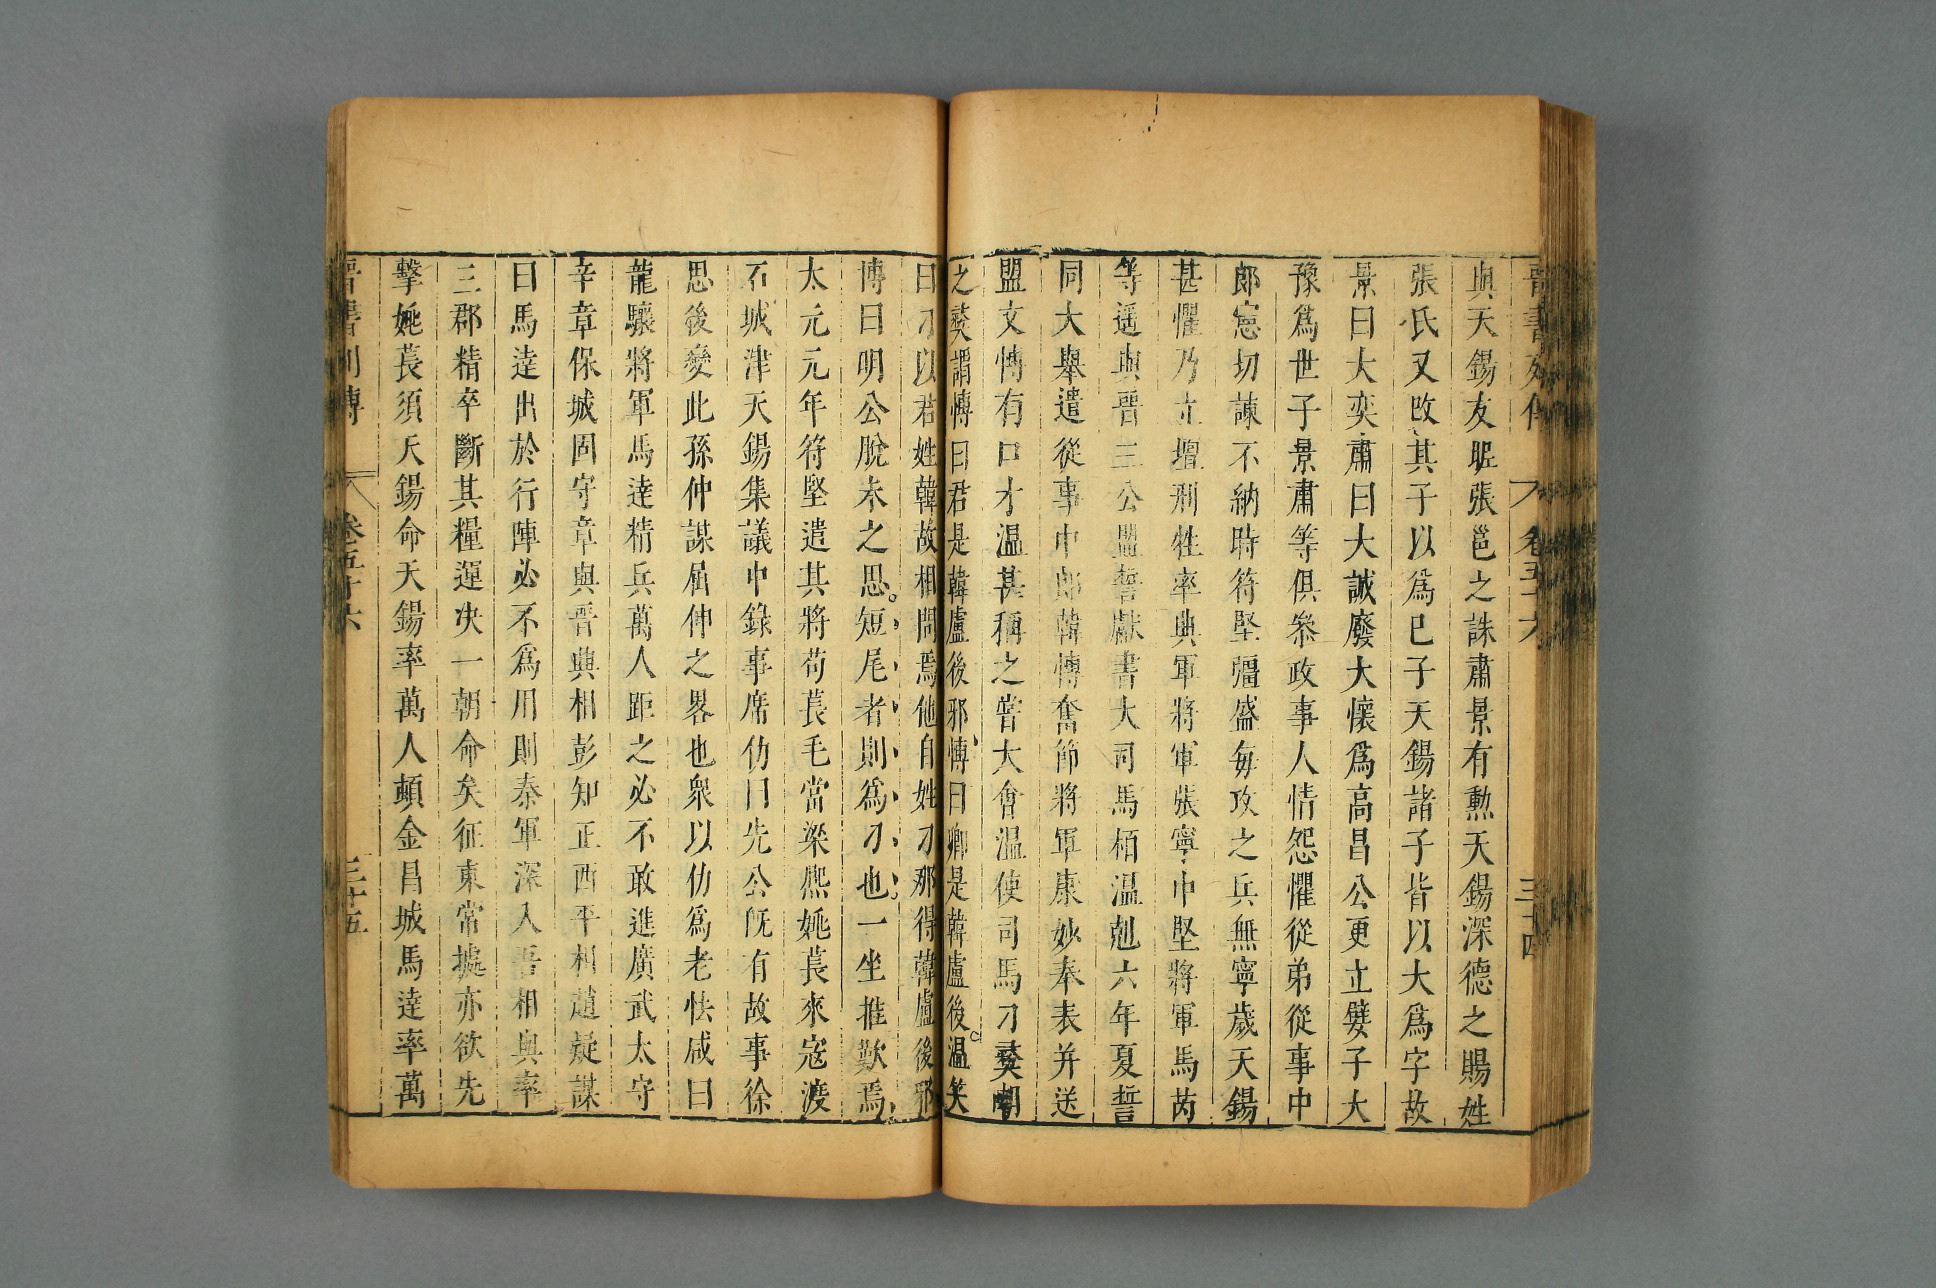 晉書列傳 卷五十六 三十四
與天錫友昵張邕之誅肅景有勲天錫深德之賜姓
張氏又改其子以爲已子天錫諸子皆以大爲字故
景曰大奕肅曰大誠廢大懷爲高昌公更立嬖子大
豫爲世子景肅等俱叅政事人情怨懼從弟從事中
郎憲切諫不納時符堅彊盛每攻之兵無寧歲天錫
甚懼乃立壇刑牲率典軍將軍張寧中堅將軍馬芮
等遥與晉三公盟誓獻書大司馬栢温剋六年夏誓
同大舉遣從事中郎韓博奮節將軍康妙奉表并送
盟文博有口才温甚稱之嘗大會温使司馬刁彛嘲
之彛謂博曰君是韓盧後邪博曰卿是韓盧後温笑
曰刁以君姓韓故相問焉他自姓刁那得韓盧後邪
博曰明公脫未之思短尾者則爲刁也一坐推歎焉
太元元年符堅遣其將苟萇毛當梁熙姚萇來寇渡
石城津天錫集議中錄事席仂曰先公旣有故事徐
思後變此孫仲謀屈伸之畧也衆以仂爲老怯咸曰
龍驤將軍馬逹精兵萬人距之必不敢進廣武太守
辛章保城固守章與晉興相彭知正西平相趙疑謀
曰馬逹出於行陣必不爲用則秦軍深入吾相與率
三郡精卒斷其糧運决一朝命矣征東常據亦欲先
擊姚萇須天錫命天錫率萬人頓金昌城馬逹率萬
晉書列傳 卷五十六 三十五